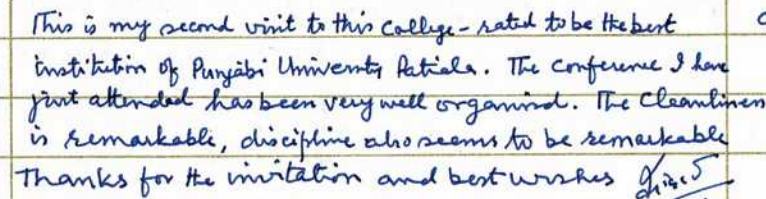 This is my second visit to this College - rated to be the best
institution of Punjabi University Patiala. The conference I have
just attended has been very well organised. The Cleanliness
is remarkable, discipline also seems to be remarkable
Thanks for the invitation and best wishes